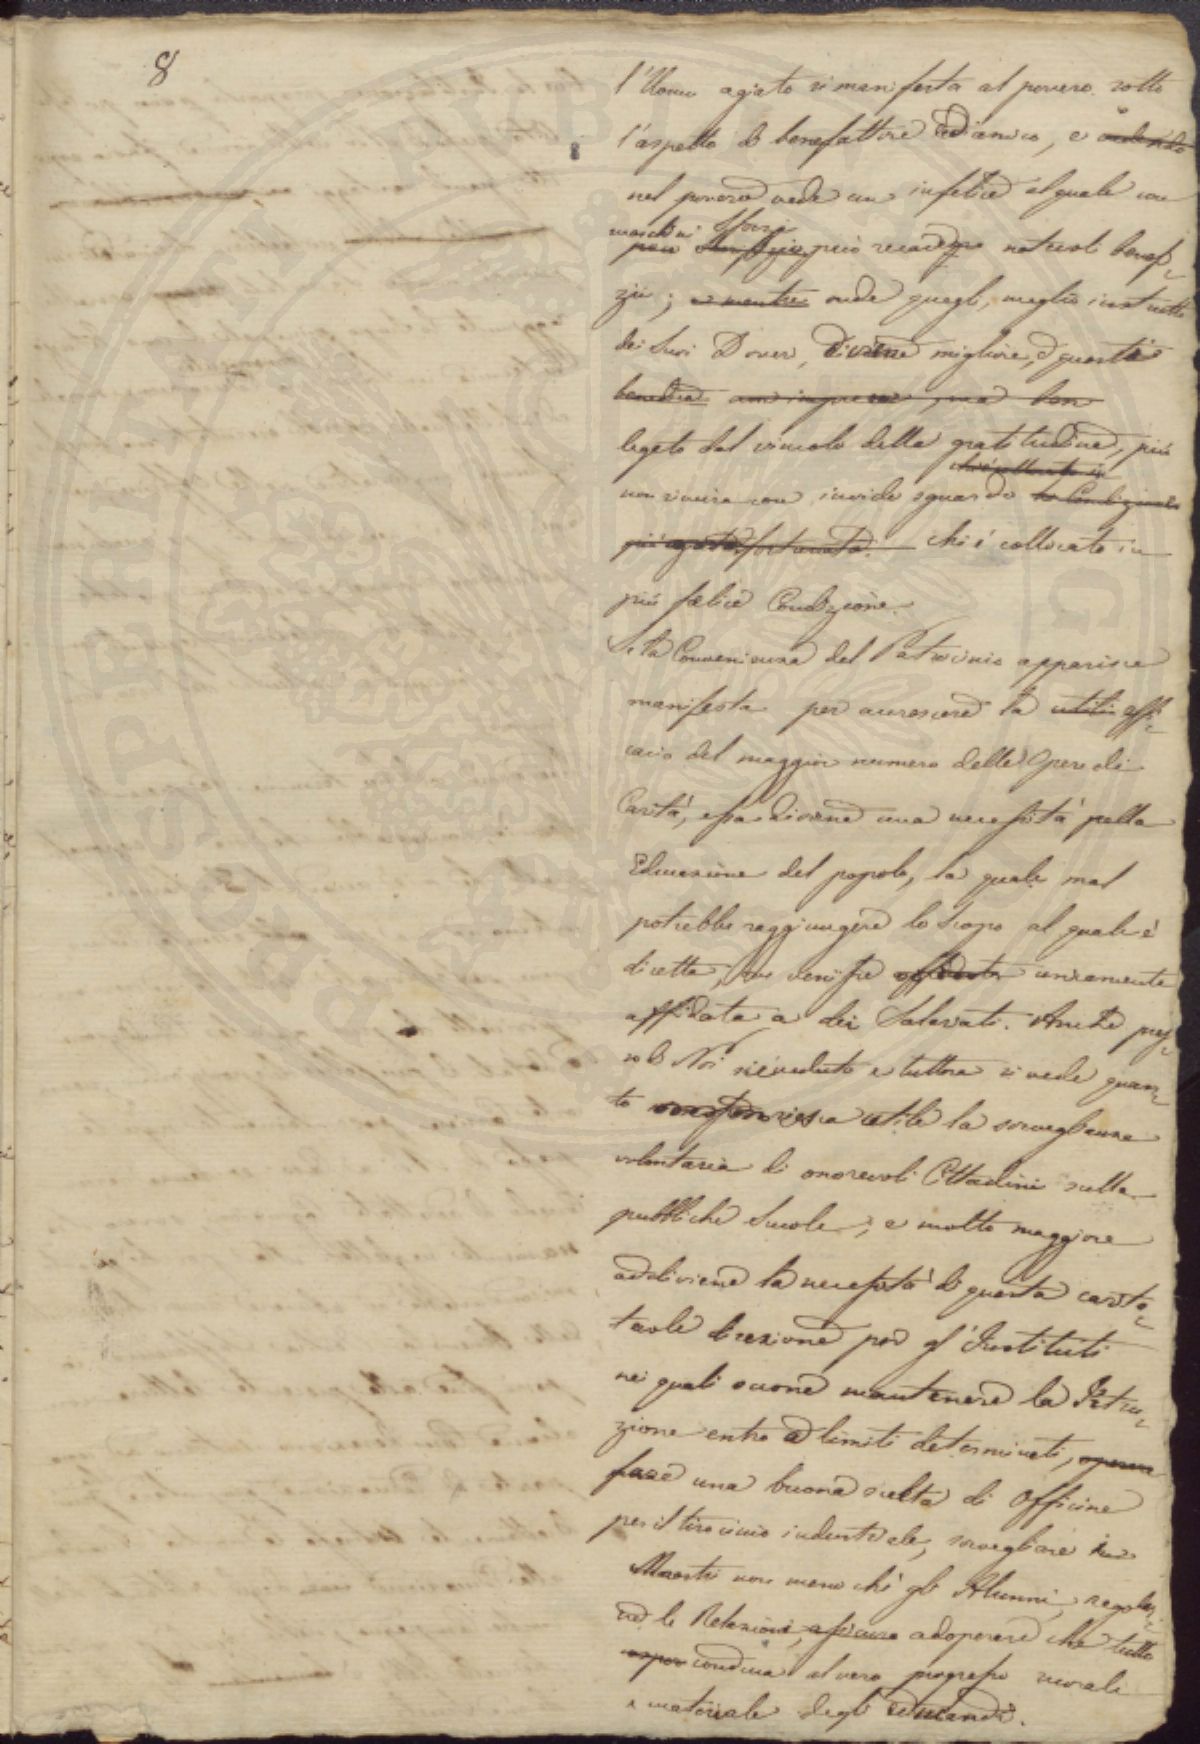 8
l'Uomo agiato si manifesta al povero sotto
l'aspetto di benefattore ed amico, e vedendo
nel povero vede un infelice al quale con
meschini sforzi
può recare notevoli benef-
zii; e mentre onde quegli, meglio istrutto
dei Suoi Doveri, diviene migliore, e questi
benedice non impreca, ma ben
legato dal vincolo della gratitudine, più
chi è collocato in
non rimira con invido sguardo la Condizione
più agiata fortunata. chi è collocato in
più felice Condizione.
Se la Convenienza del Patrocinio apparisce
manifesta per accrescere la utili effi-
cacia del maggior numero delle Opere di
Carità, essa diviene una necessità nella
Educazione del popolo, la quale mal
potrebbe raggiungere lo Scopo al quale è
diretta, se venisse affidata unicamente
affidata a dei Salariati. Anche pres-
so di Noi si è veduto e tuttora si vede quan-
to riesca utile la sorveglianza
volontaria di onorevoli Cittadini sulle
pubbliche Scuole; e molto maggiore
addiviene la necessità di questa carita-
tevole direzione per gl'Instituti
nei quali occorre mantenere la Istru-
zione entro a limiti determinati,
fare una buona scelta di Officine
per il tirocinio industriale, sorvegliare i
Maestri non meno che gli Alunni, regola-
re le Relazioni, adoperare che tutto
conduca al vero progresso morale
e materiale degli educandi.